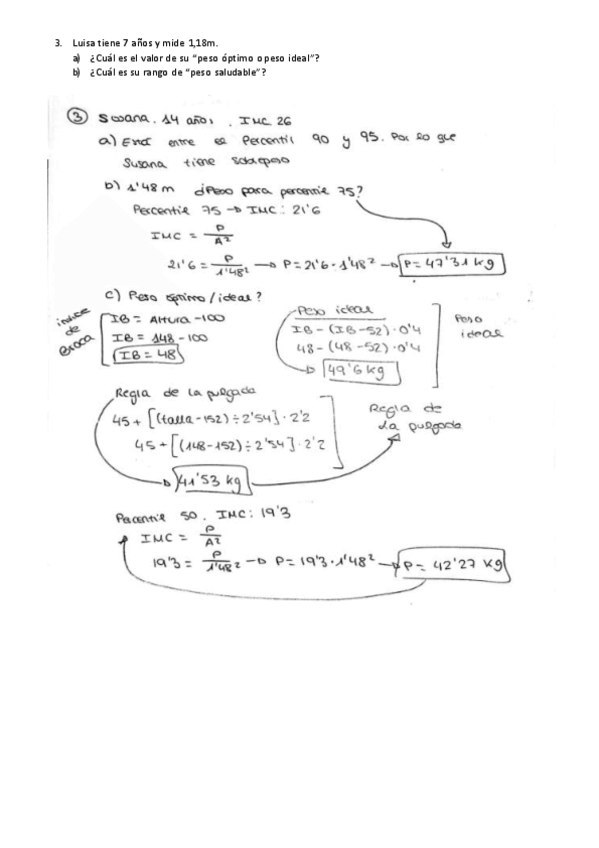 3. Luisa tiene 7 años y mide 1,18m.
a) ¿Cuál es el valor de su “peso óptimo o peso ideal”?
b) ¿Cuál es su rango de “peso saludable”?
③ Susana. 14 años. IMC 26
a) Está entre el Percentil 90 y 95. Por lo que
Susana tiene sobrepeso
b) 1'48 m ¿Peso para percentil 75?
Percentil 75 → IMC: 21'6
IMC = P/A²
21'6 = P/1'48² → P = 21'6 · 1'48² → P = 47'31 kg
c) Peso óptimo/ideal?
índice de Broca
IB = Altura - 100
IB = 148 - 100
IB = 48
Peso ideal
IB - (IB - 52) · 0'4
48 - (48 - 52) · 0'4
49'6 kg
Peso ideal
Regla de la pulgada
45 + [(talla - 152) ÷ 2'54] · 2'2
45 + [(148 - 152) ÷ 2'54] · 2'2
41'53 kg
Regla de la pulgada
Percentil 50. IMC: 19'3
IMC = P/A²
19'3 = P/1'48² → P = 19'3 · 1'48² → P = 42'27 kg